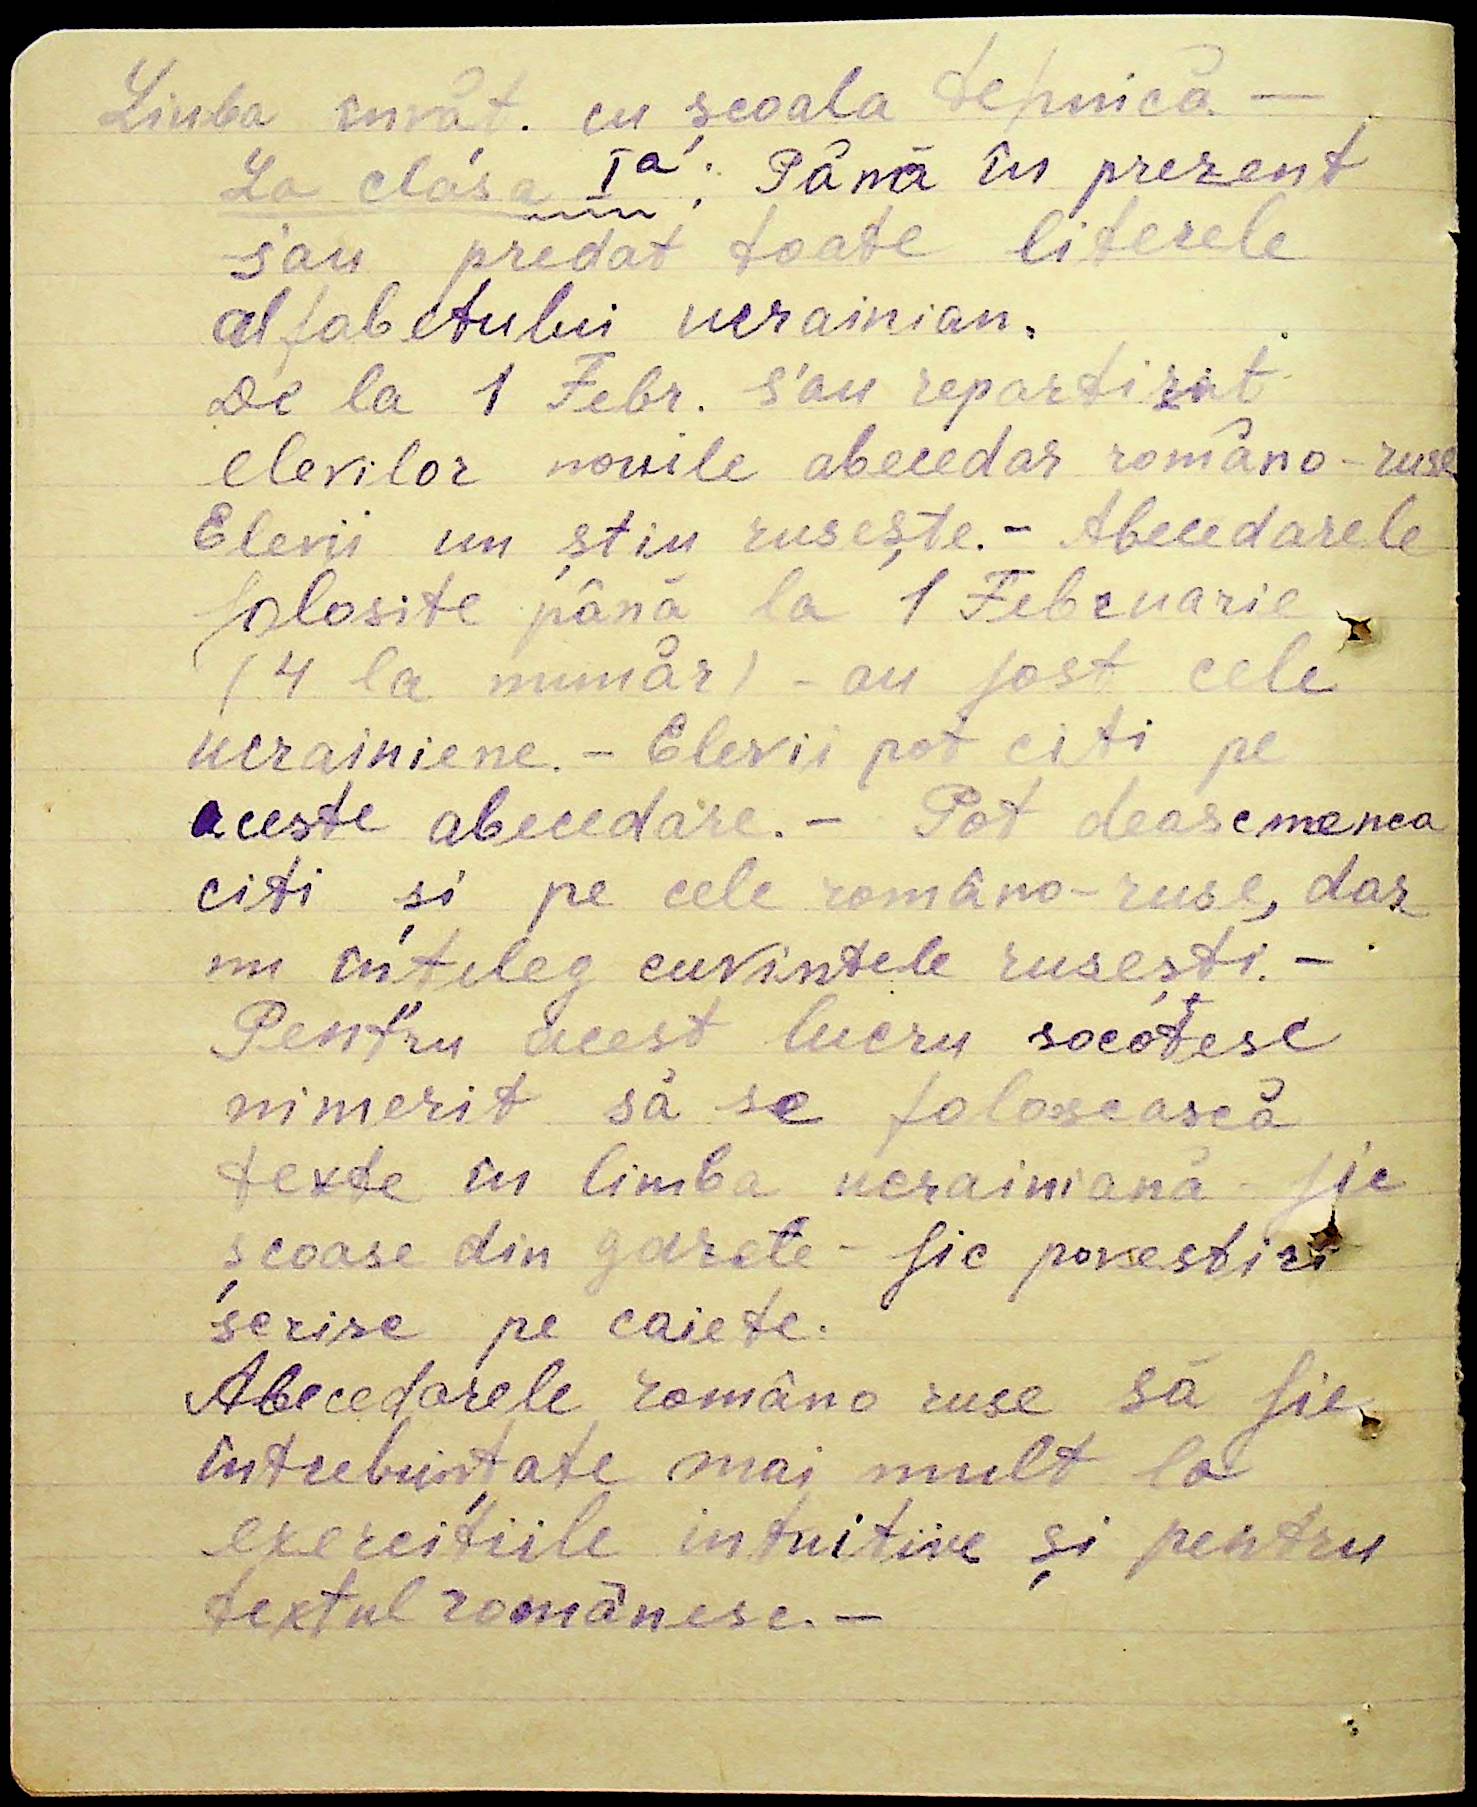 Limba învăț. cu școala tehnică —
La clasa Iª: Până în prezent
s'au predat toate literele
alfabetului ucrainian.
De la 1 Febr. s'au repartizat
elevilor nouile abecedar româno-ruse
Elevii nu știu rusește. - Abecedarele
folosite până la 1 Februarie
(4 la număr) - au fost cele
ucrainiene. - Elevii pot citi pe
aceste abecedare. - Pot deasemenea
citi și pe cele româno-ruse, dar
nu înțeleg cuvintele rusești. -
Pentru acest lucru socotesc
nimerit să se folosească
texte în limba ucrainiană fie
scoase din gazete - fie povestiri
scrise pe caiete.
Abecedarele româno ruse să fie
întrebuințate mai mult la
exercițiile intuitive și pentru
textul românesc. -